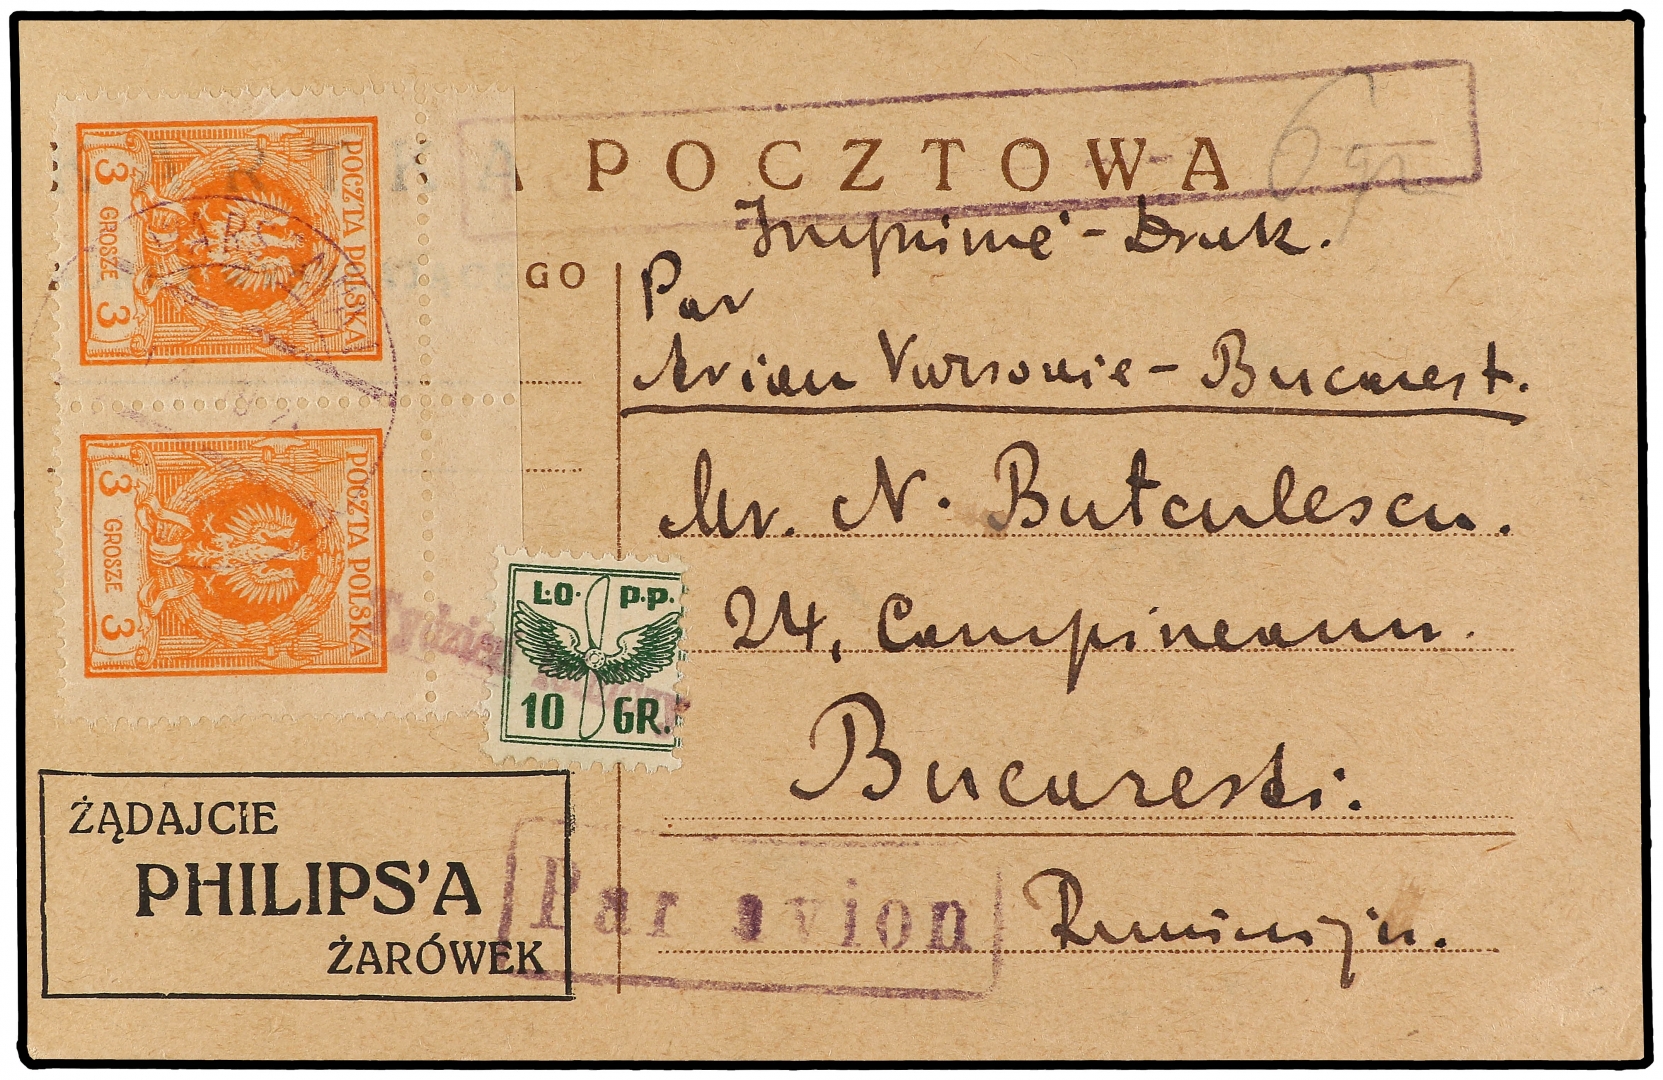 A POCZTOWA
6 gr
Imprimé - Druk.
GO
Par
Avion Varsovie - Bucarest.
Mr. N. Butculescu.
24, Campineanu.
Bucaresti.
Rumunija.
POCZTA POLSKA
3 GROSZE 3
POCZTA POLSKA
3 GROSZE 3
Tydzień
L.O.P.P.
10 GR.
ŻĄDAJCIE
PHILIPS'A
ŻARÓWEK
Par avion